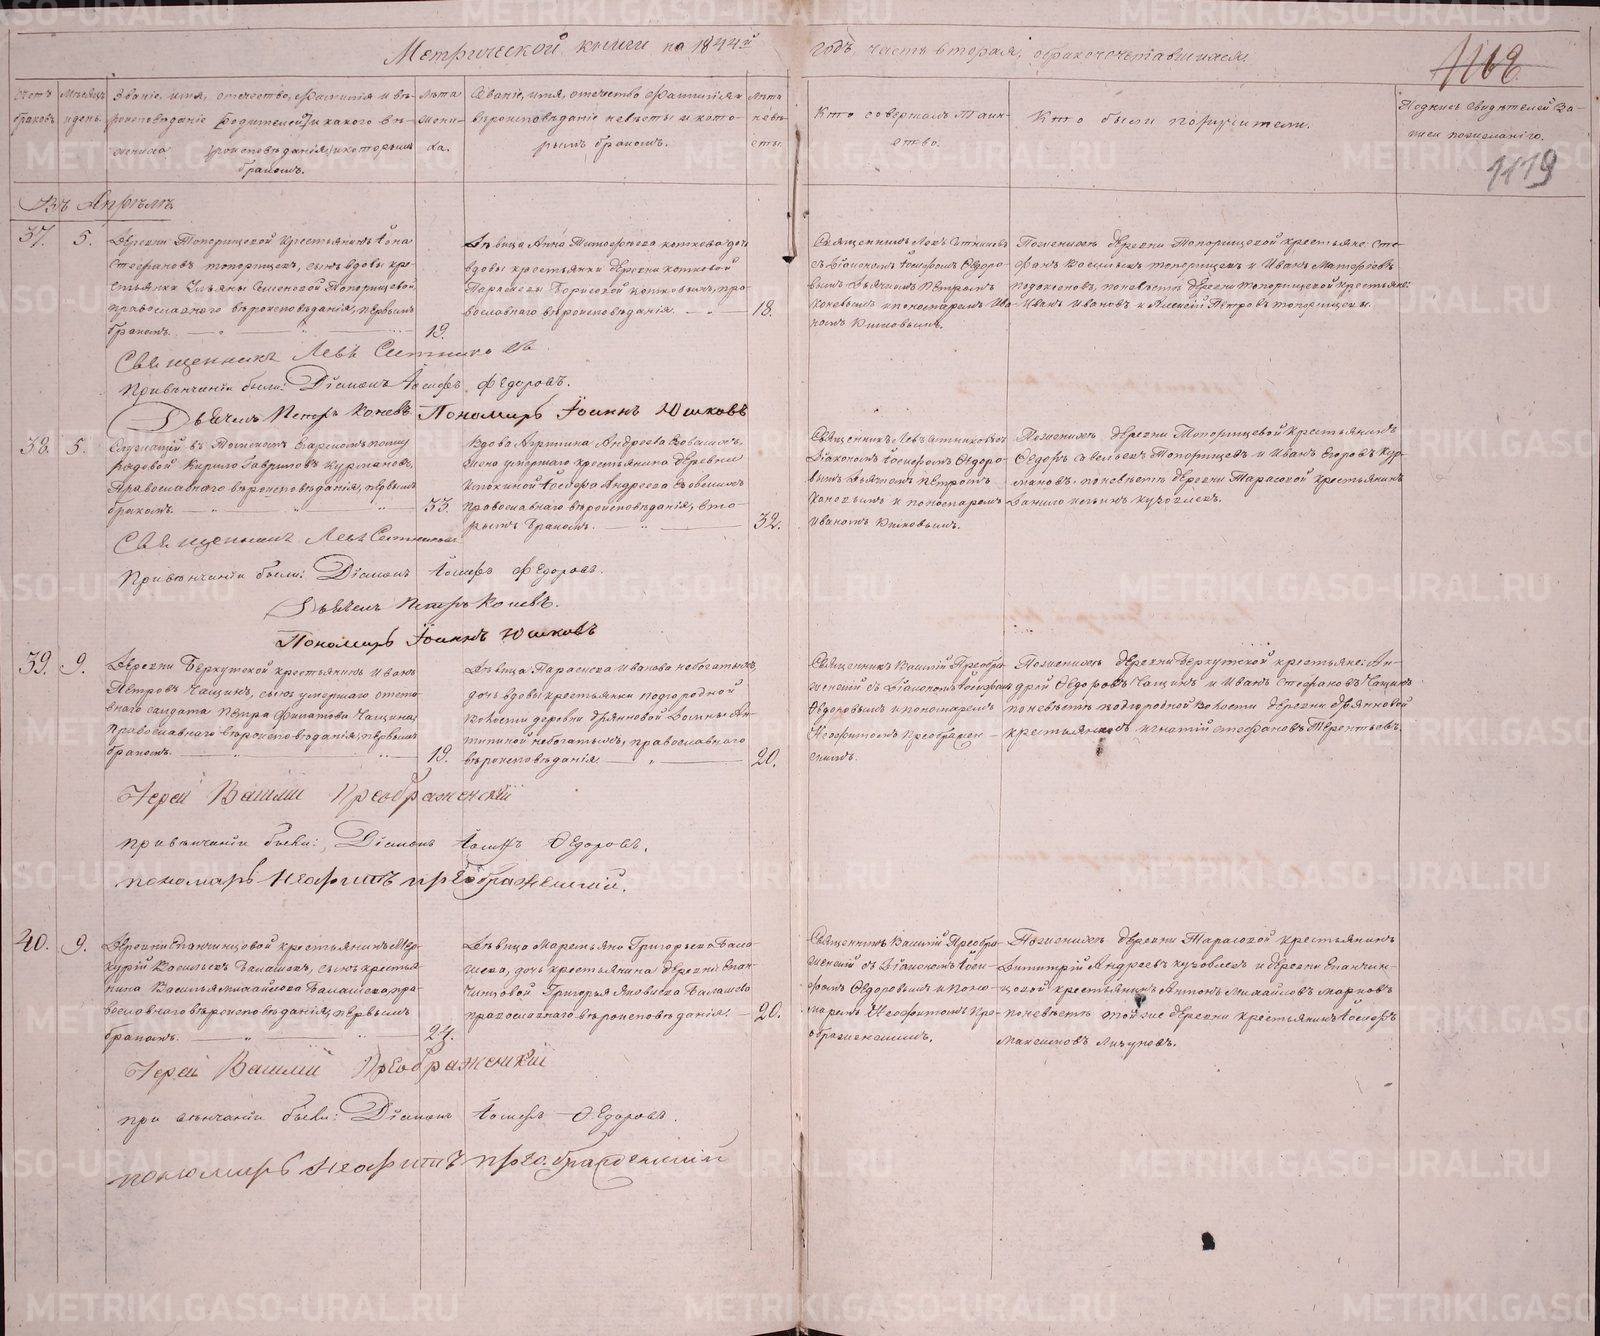 Метрической книги на 1844й годъ, часть вторая, о бракосочетавшихся
1168
1119
Счетъ браковъ.
Мѣсяцъ и день.
Званіе, имя, отечество, фамилія и вѣ-
роисповѣданіе жениха и какого вѣ-
роисповѣданія, и которымъ
бракомъ.
Лѣта
жени-
ха.
Званіе, имя, отечество, фамилія и
вѣроисповѣданіе невѣсты и кото-
рымъ бракомъ.
Лѣта
невѣ-
сты.
Кто совершалъ Таин-
ство.
Кто были поручители.
Подпись свидѣтелей за-
писи по желанію.
Въ Апрѣлѣ
37. 5.
Деревни Топорищевой крестьянинъ Іона
Стефановъ Топорищевъ, сынъ вдовы кре-
стьянки Ульяны Семеновой Топорищевой
православнаго вѣроисповѣданія, первымъ
бракомъ.
19.
Дѣвица Анна Тимофѣева дочь
вдовы крестьянки деревни
Параскевы Борисовой пра-
вославнаго вѣроисповѣданія.
18.
Священникъ Левъ Ситниковъ
съ Діакономъ Іосифомъ Ѳедоро-
вымъ Дьячкомъ Петромъ
Коневымъ и пономаремъ Ива-
номъ Юшковымъ.
По женихѣ деревни Топорищевой крестьяне: Сте-
фанъ Васильевъ Топорищевъ и Иванъ
по невѣстѣ деревни Топорищевой крестьяне:
Иванъ Ивановъ и Алексѣй Петровъ Топорищевы.
Священникъ Левъ Ситниковъ
При вѣнчаніи были: Діаконъ Іосифъ Ѳедоровъ.
Дьячекъ Петръ Коневъ Пономарь Іоаннъ Юшковъ
38. 5.
Служащій въ
рядовой Кирило Гавриловъ Курмановъ,
Православнаго вѣроисповѣданія, первымъ
бракомъ.
33.
Вдова Агрипина Андреева
жена умершаго крестьянина деревни
Іосифа Андреева
православнаго вѣроисповѣданія, вто-
рымъ бракомъ.
32.
Священникъ Левъ Ситниковъ съ
Діакономъ Іосифомъ Ѳедоро-
вымъ Дьячкомъ Петромъ
Коневымъ и пономаремъ
Иваномъ Юшковымъ.
По женихѣ деревни Топорищевой крестьянинъ
Ѳедоръ Савельевъ Топорищевъ и Иванъ Егоровъ Кур-
мановъ, по невѣстѣ деревни Тарасовой крестьянинъ
Данило
Священникъ Левъ Ситниковъ
При вѣнчаніи были: Діаконъ Іосифъ Ѳедоровъ.
Дьячекъ Петръ Коневъ.
Пономарь Іоаннъ Юшковъ
39. 9.
Деревни Беркутской крестьянинъ Иванъ
Петровъ Чащинъ, сынъ умершаго отста-
внаго солдата Петра Филатова Чащина,
Православнаго вѣроисповѣданія, первымъ
бракомъ.
19.
Дѣвица Параскева Иванова Небогатыхъ,
дочь вдовы крестьянки подгородной
волости деревни Дрянновой Домны Ан-
типиной Небогатыхъ, православнаго
вѣроисповѣданія.
20.
Священникъ Василій Преобра-
женскій съ Діакономъ Іосифомъ
Ѳедоровымъ и пономаремъ
Неофитомъ Преображен-
скимъ.
По женихѣ деревни Беркутской крестьяне: Ан-
дрей Ѳедоровъ Чащинъ и Иванъ Стефановъ Чащинъ
по невѣстѣ подгородной волости деревни Дрянновой
крестьянинъ Игнатій Стефановъ Терентьевъ.
Іерей Василій Преображенскій
при вѣнчаніи были: Діаконъ Іосифъ Ѳедоровъ.
пономарь Неофитъ Преображенскій.
40. 9.
Деревни Епанчинцовой крестьянинъ Мер-
курій Васильевъ Балашевъ, сынъ крестья-
нина Василья Михайлова Балашева, пра-
вославнаго вѣроисповѣданія, первымъ
бракомъ.
24.
Дѣвица Маремьяна Григорьева Бала-
шева, дочь крестьянина деревни Епан-
чинцовой Григорья Яковлева Балашева
православнаго вѣроисповѣданія.
20.
Священникъ Василій Преобра-
женскій съ Діакономъ Іоси-
фомъ Ѳедоровымъ и Поно-
маремъ Неофитомъ Пре-
ображенскимъ.
По женихѣ деревни Тарасовой крестьянинъ
Димитрій Андреевъ и деревни Епанчин-
цовой крестьянинъ Антонъ Михайловъ Марковъ
по невѣстѣ той же деревни крестьянинъ Іосифъ
Максимовъ
Іерей Василій Преображенскій
при вѣнчаніи были: Діаконъ Іосифъ Ѳедоровъ.
пономарь Неофитъ Преображенскій
METRIKI.GASO-URAL.RU